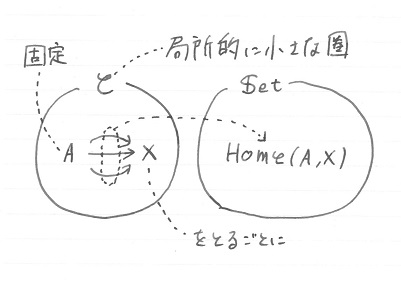 局所的に小さな圏
固定
C
Set
A
X
Homc(A,X)
をとるごとに